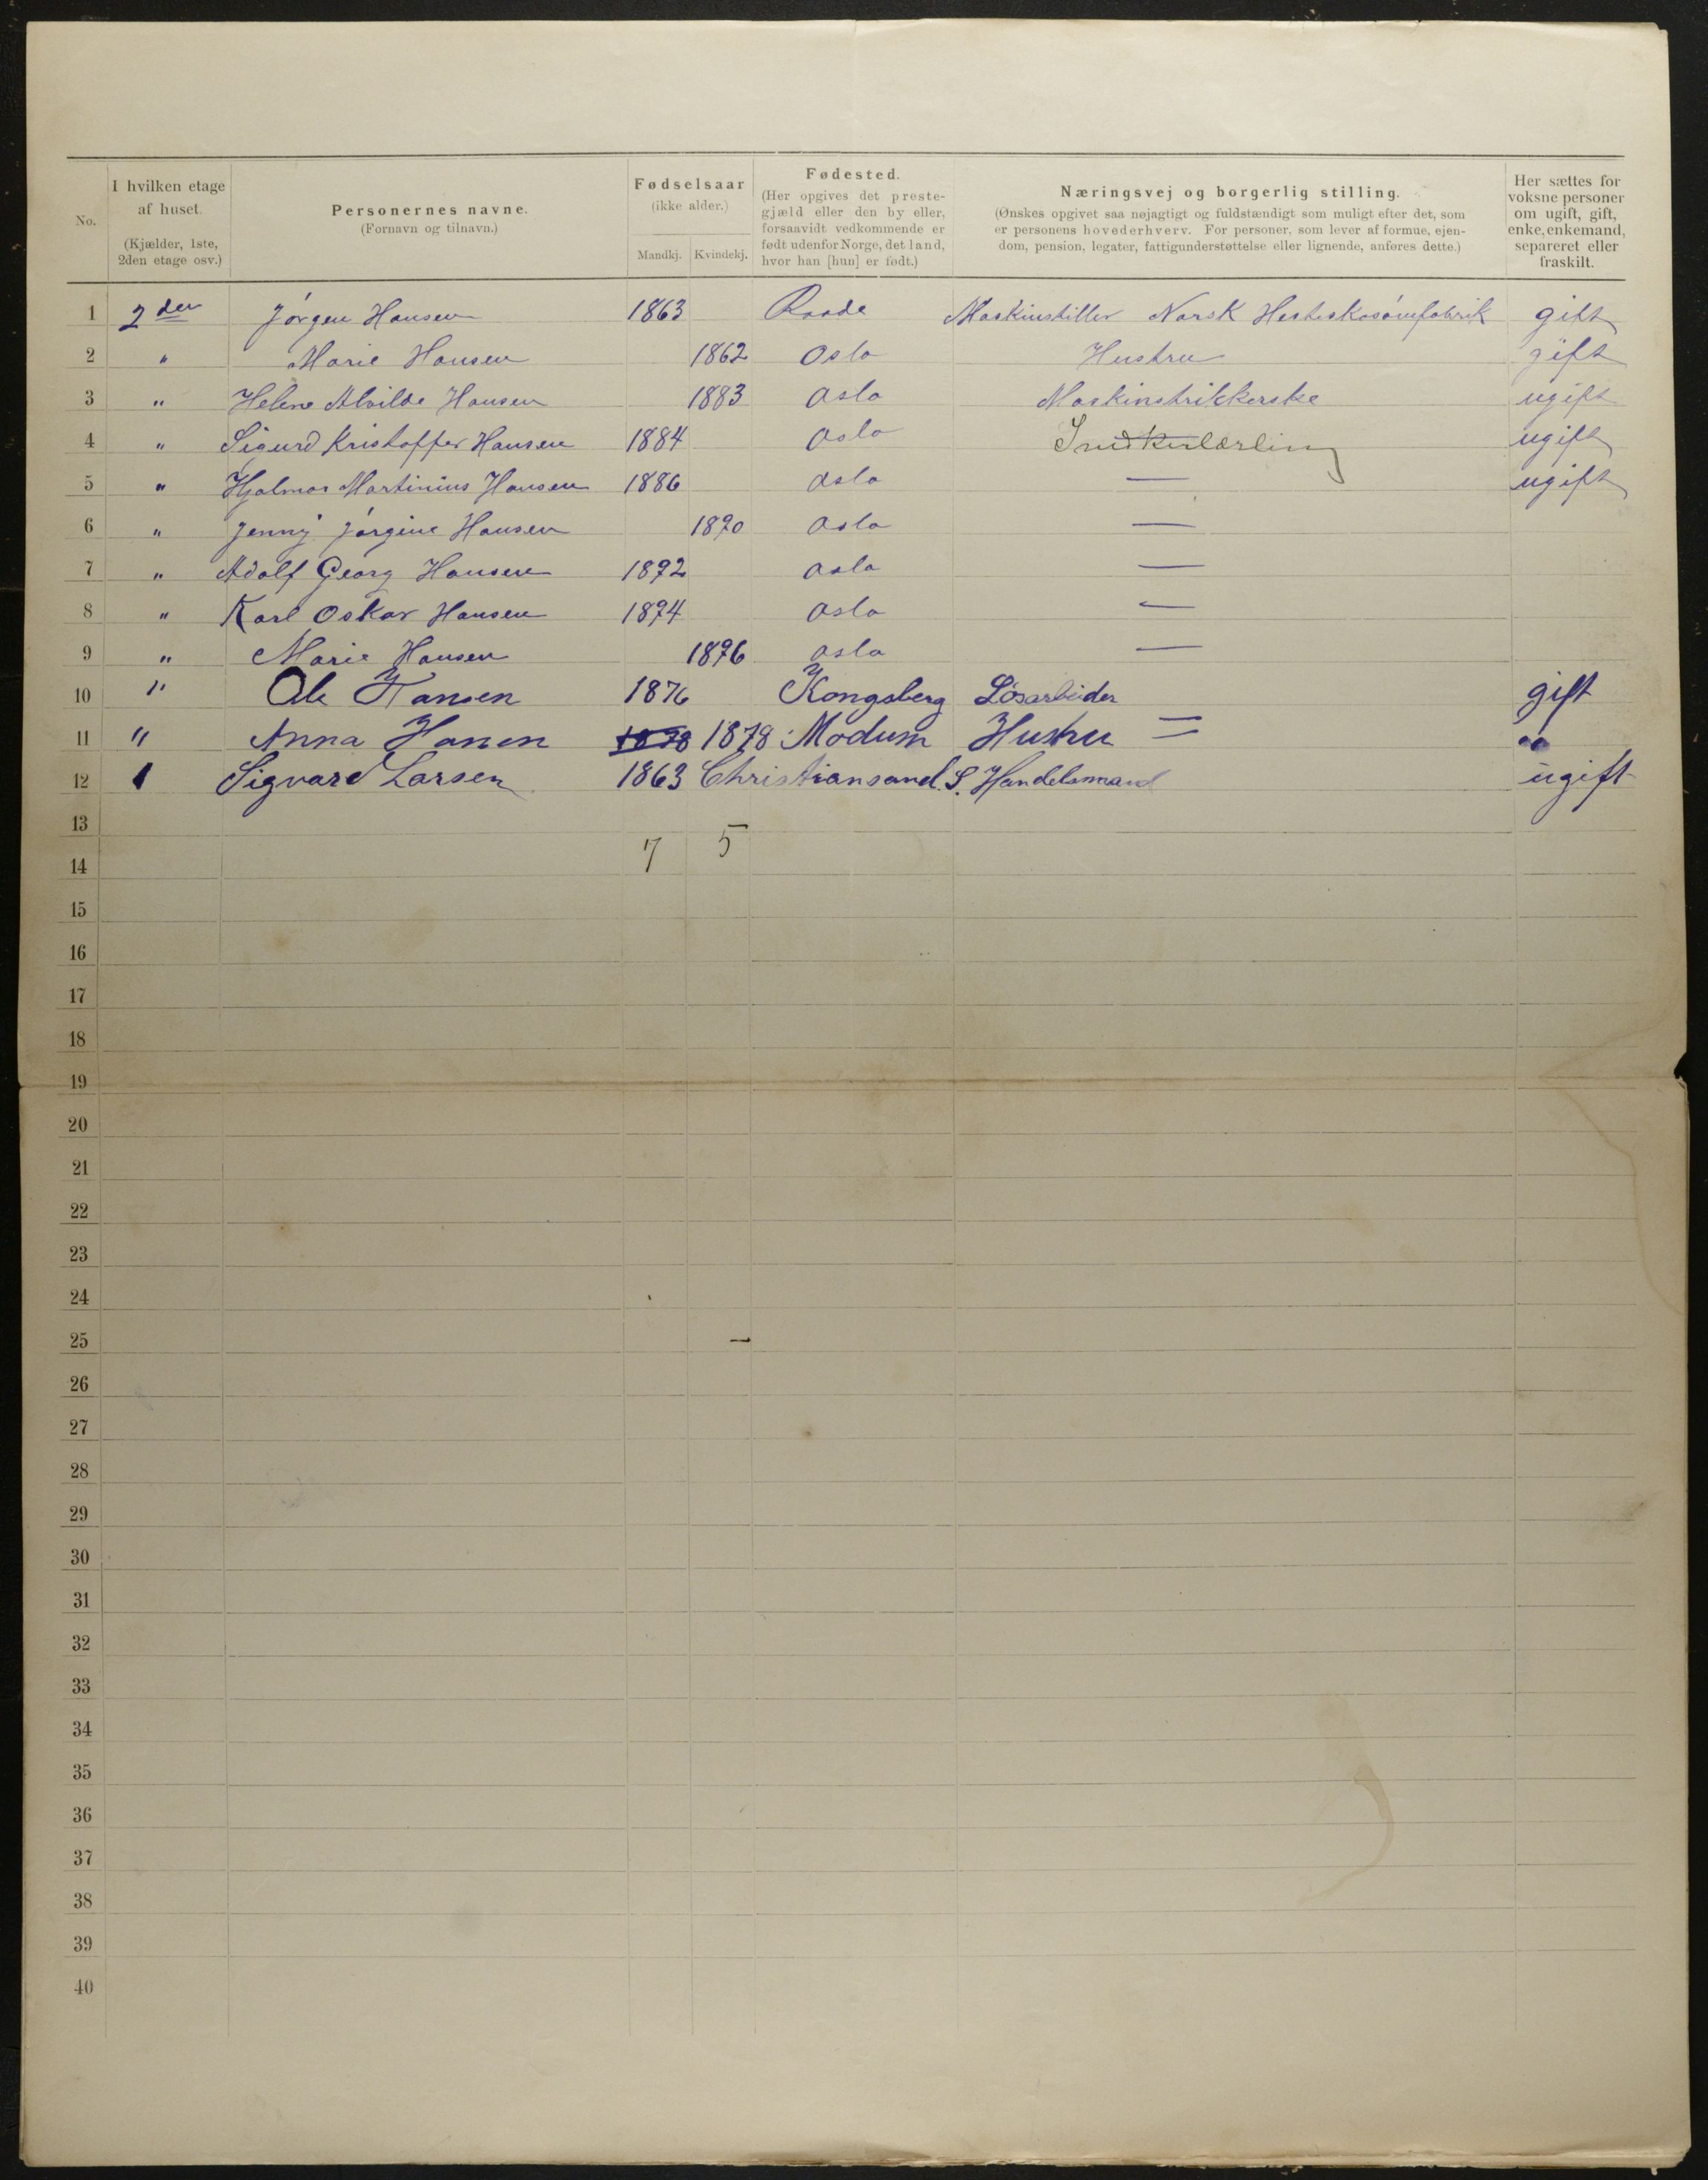 No.
I hvilken etage af huset. (Kjælder, 1ste, 2den etage osv.)
Personernes navne. (Fornavn og tilnavn.)
Fødselsaar (ikke alder.)
Mandkj. Kvindekj.
Fødested. (Her opgives det prestegjæld eller den by eller, forsaavidt vedkommende er født udenfor Norge, det land, hvor han [hun] er født.)
Næringsvej og borgerlig stilling.
(Ønskes opgivet saa nøjagtigt og fuldstændigt som muligt efter det, som er personens hovederhverv. For personer, som lever af formue, ejendom, pension, legater, fattigunderstøttelse eller lignende, anføres dette.)
Her sættes for voksne personer om ugift, gift, enke, enkemand, separeret eller fraskilt.
1 2den Jørgen Hansen 1863 Raade Maskinstiller Norsk Hesteskosømfabrik gift
2 " Marie Hansen 1862 Oslo Hustru gift
3 " Helene Alvilde Hansen 1883 Oslo Maskinstrikkerske ugift
4 " Sigurd Kristoffer Hansen 1884 Oslo ugift
5 " Hjalmar Martinius Hansen 1886 Oslo — ugift
6 " Jenny Jørgine Hansen 1890 Oslo —
7 " Adolf Georg Hansen 1892 Oslo —
8 " Karl Oskar Hansen 1894 Oslo —
9 " Marie Hansen 1896 Oslo —
10 " Ole Hansen 1876 Kongsberg Løsarbeider gift
11 " Anna Hansen 1878 1878 Modum Hustru = "
12 " Sigvard Larsen 1863 Christiansand. S. Handelsmand ugift
13
7 5
14
15
16
17
18
19
20
21
22
23
24
25 –
26
27
28
29
30
31
32
33
34
35
36
37
38
39
40